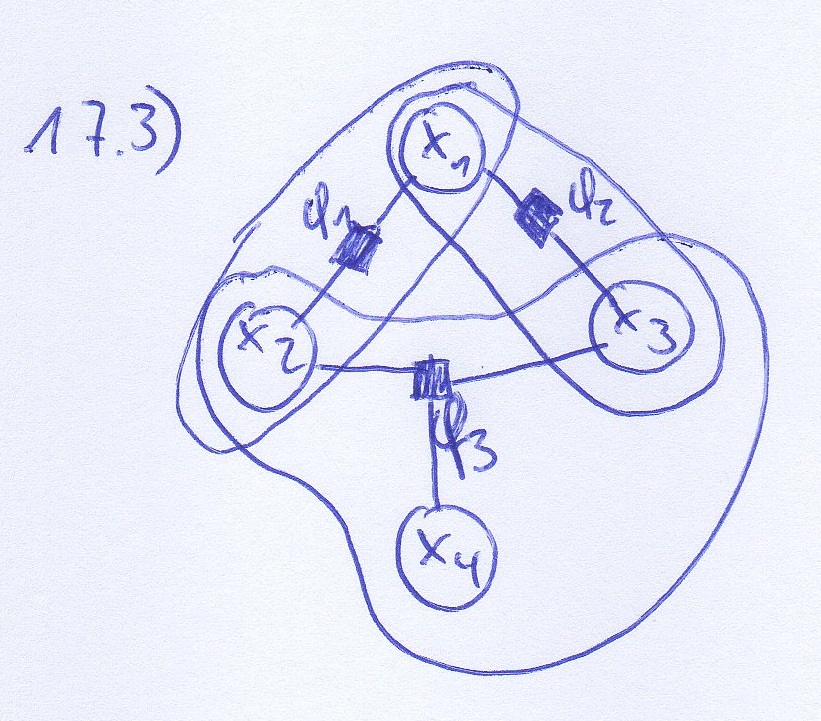 17.3)
x₁
φ₁
φ₂
x₂
x₃
φ₃
x₄